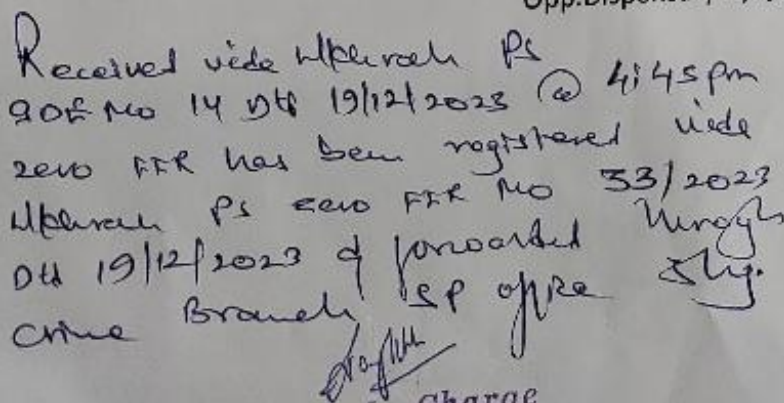 Opp.Dispensa
Received vide Umkhrah PS
GDE No 14 Dtd 19/12/2023 @ 4:45pm
zero FIR has been registered vide
Umkhrah PS zero FIR No 33/2023
Dtd 19/12/2023 & forwarded through
Crime Branch SP office Shg.
Charge